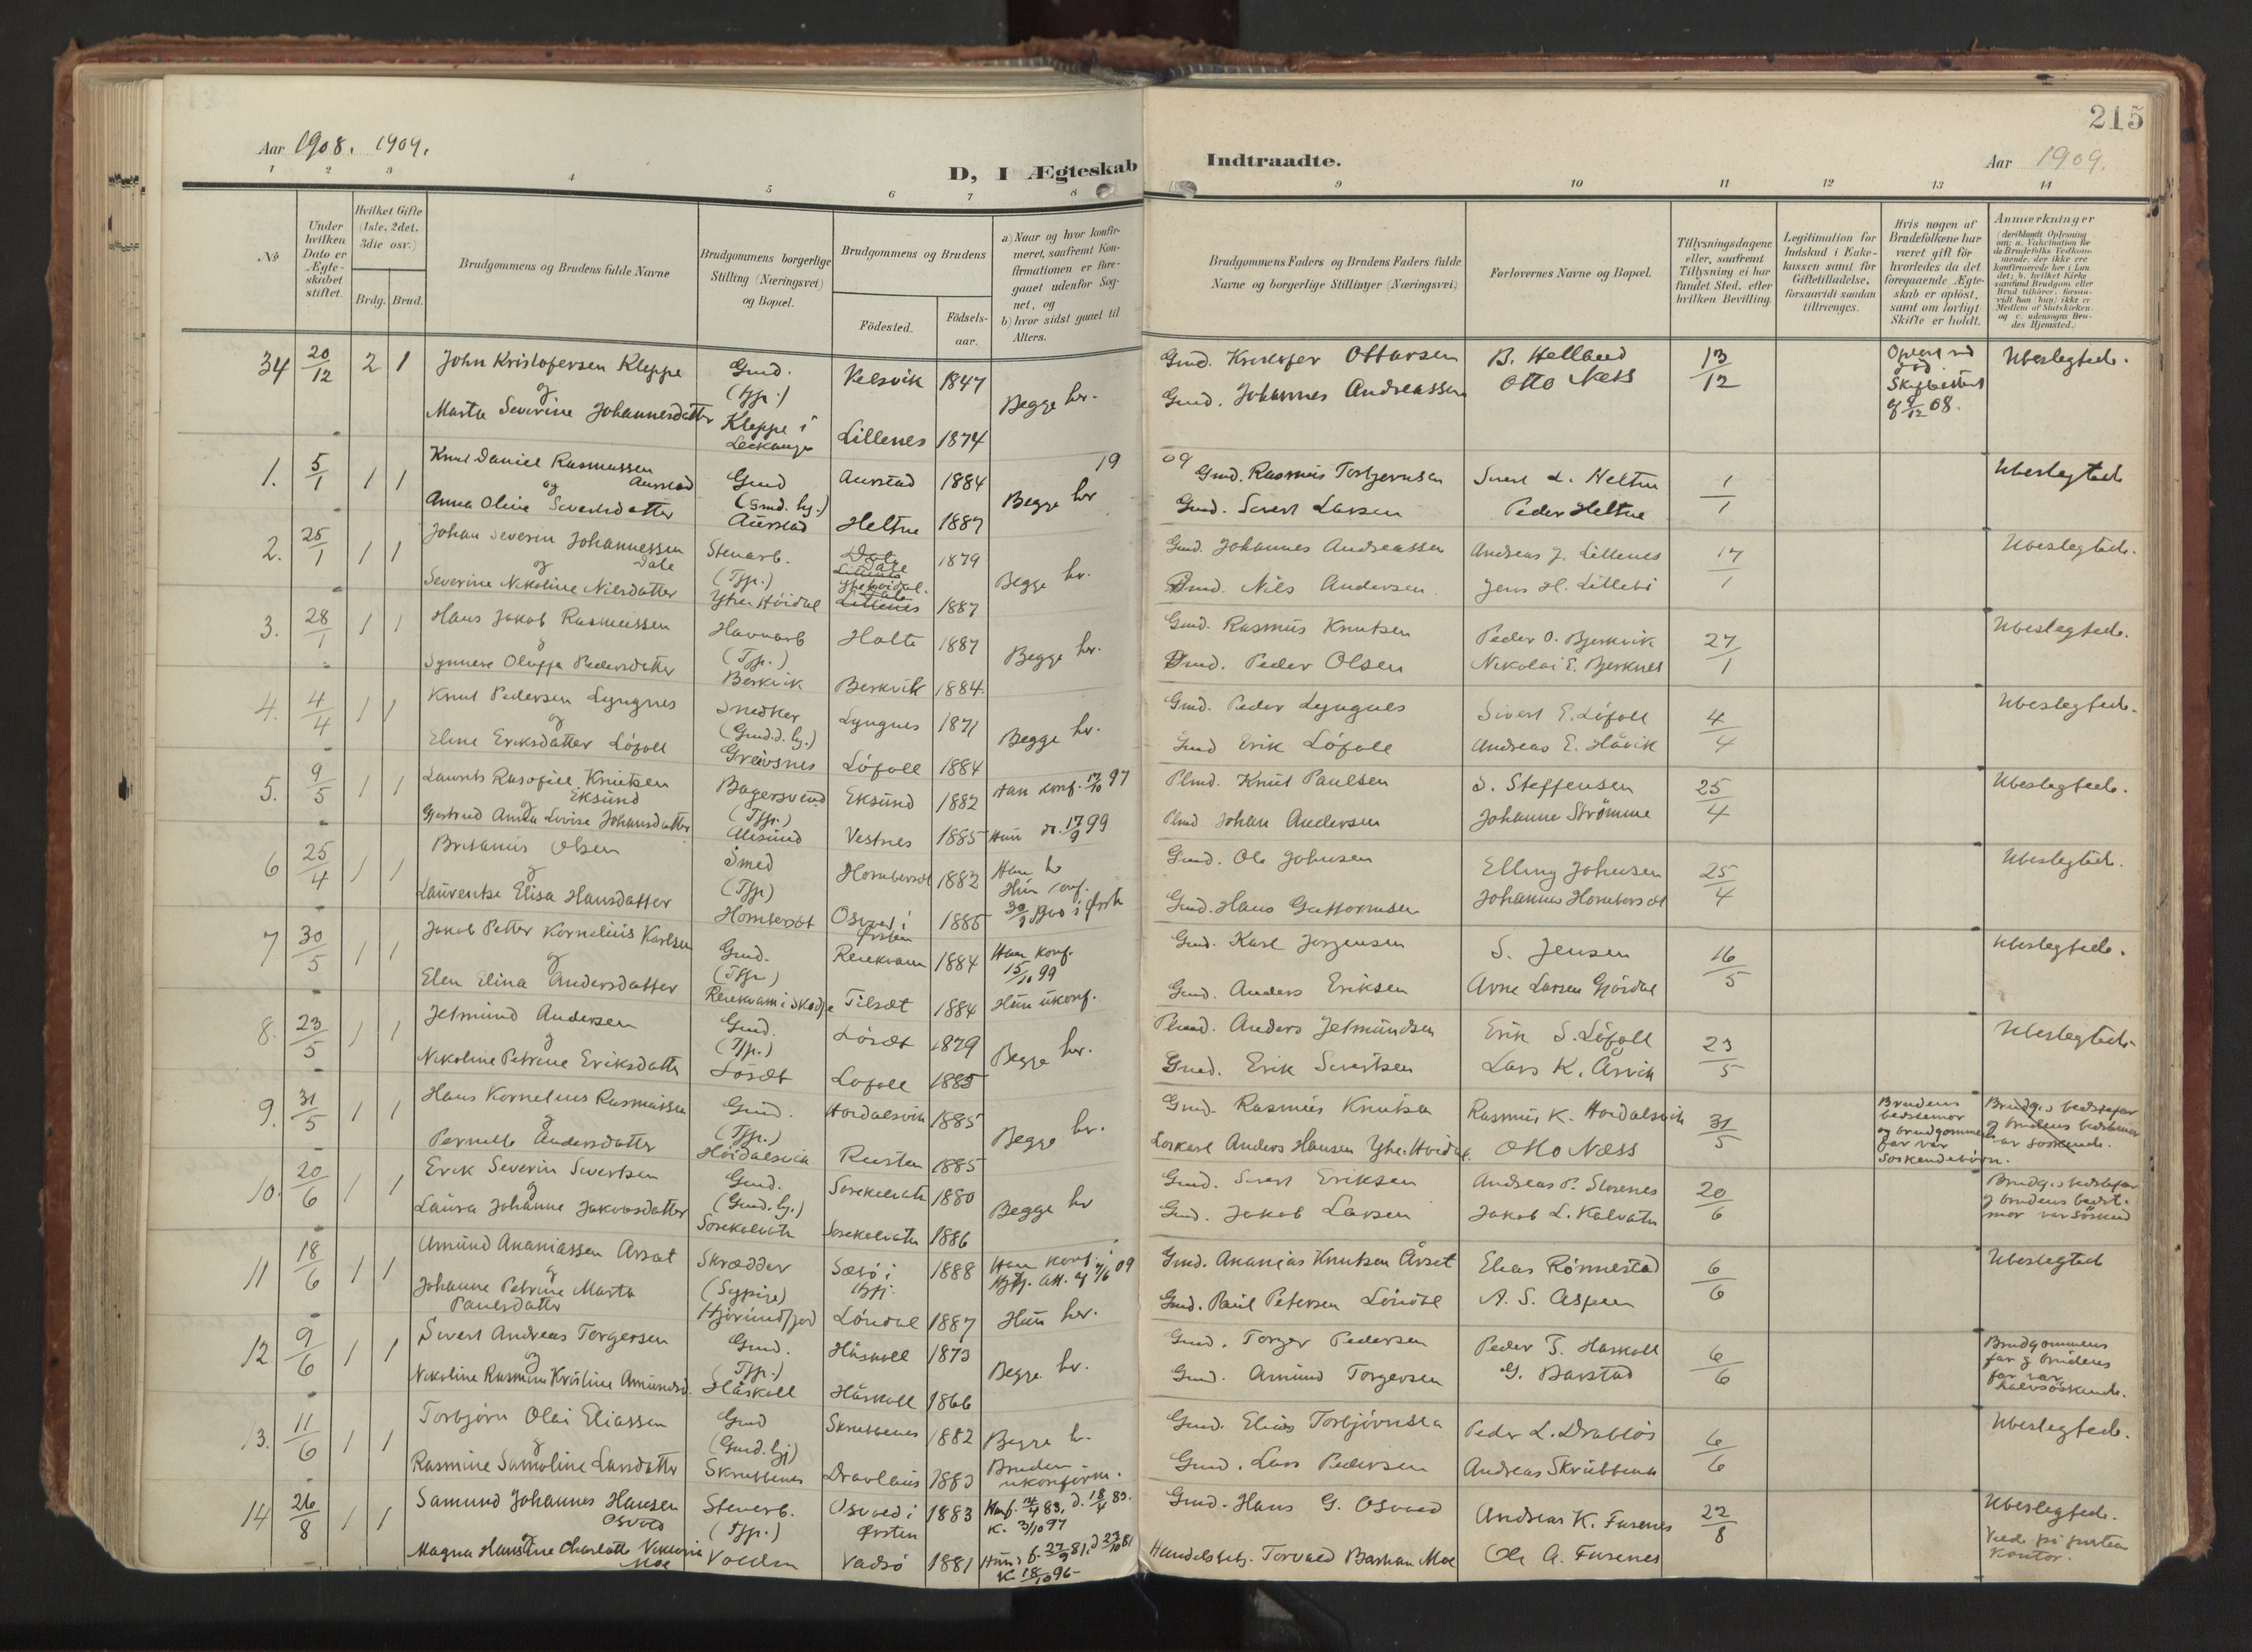 215
Aar 1908. 1909.
D, I Ægteskab Indtraadte.
Aar 1909.
1 2 3 4 5 6 7 8 9 10 11 12 13 14
No
Under hvilken Dato er Ægteskabet stiftet.
Hvilket Gifte (1ste, 2det, 3die osv.)
Brdg. Brud.
Brudgommens og Brudens fulde Navne
Brudgommens borgerlige Stilling (Næringsvei) og Bopæl.
Brudgommens og Brudens
Födested.
Födsels-aar.
a) Naar og hvor konfirmeret, saafremt Konfirmationen er foregaaet udenfor Sognet, og
b) hvor sidst gaaet til Alters.
Brudgommens Faders og Brudens Faders fulde Navne og borgerlige Stillinger (Næringsvei)
Forlovernes Navne og Bopæl.
Tillysningsdagene eller, saafremt Tillysning ei har fundet Sted, efter hvilken Bevilling.
Legitimation for Indskud i Enkekassen samt for Giftetilladelse, forsaavidt saadan tiltrænges.
Hvis nogen af Brudefolkene har været gift før hvorledes da det foregaaende Ægteskab er opløst, samt om lovligt Skifte er holdt.
Anmærkninger
34 20/12 2 1 John Kristofersen Kleppe Gmd. Velsvik 1847 Begge her. Gmd. Kristofer Ottarsen B. Helland 13/12 Ubeslegtede.
og (Tjp.)
Marta Severine Johannesdatter Kleppe i Lillenes 1874 Gmd. Johannes Andreassen Otto Ness
1909
1. 5/1 1 1 Knut Daniel Rasmussen Aurstad Gmd Aurstad 1884 Begge her Gmd. Rasmus Torbjørnsen Sivert L. Heltne 1/1 Ubeslegtede
og (Gmd. hj.)
Anna Oline Sivertsdatter Aurstad Heltne 1887 Gmd. Sivert Larsen Peder Heltne
2. 25/1 1 1 Johan Severin Johannessen Dale Stenarb. Dale 1879 Begge her. Gmd. Johannes Andreassen Andreas J. Lillenes 17/1 Ubeslegtede.
og (Tjp.)
Severine Nikoline Nilsdatter Ytre-Høidal Lillenes 1887 Nils Andersen Jens H. Lillebø
3. 28/1 1 1 Hans Jakob Rasmussen Havnarb Holte 1887 Begge her. Gmd. Rasmus Knutsen Peder O. Bjerkvik 27/1 Ubeslegtede.
og (Tjp.)
Synnøve Oluffa Pedersdatter Berkvik Berkvik 1884. Peder Olsen Nikolai E. Bjerknes
4. 4/4 1 1 Knut Pedersen Lyngnes Snedker Lyngnes 1871 Begge her. Gmd. Peder Lyngnes Sivert E. Löfoll 4/4 Ubeslegtede.
og (Gmd.d. hj.)
Eline Eriksdatter Löfoll Greivsnes Löfoll 1884 Gmd Erik Löfoll Andreas E. Håvik
5. 9/5 1 1 Laurits Knutsen Eksund Bagersvend Eksund 1882 Han konf. 17/10 97 Plmd. Knut Paulsen S. Steffensen 25/4 Ubeslegtede.
og (Tjp.)
Gjertrud Anna Lovise Johansdatter Alesund Vestnes 1885 Hun do. 17/9 99 Plmd Johan Andersen Johanne Strömme
6 25/4 1 1 Olsen Smed 1882 Han h Gmd. Ole Johnsen Elling Johnsen 25/4 Ubeslegtede.
og (Tjp) Hun konf.
Laurentse Elisa Hansdatter Osvoll i Ørsten 1885 Gmd. Hans Guttormsen
7. 30/5 1 1 Jakob Petter Kornelius Karlsen Gmd. Renekvam 1884 Han konf. 15/10 99 Gmd. Karl Jørgensen S. Jensen 16/5 Ubeslegtede.
og (Tjp.)
Elen Elina Andersdatter Renekvam i Skodje Tilset 1884 Hun ukonf. Gmd. Anders Eriksen Arne Larsen Gjördal
8. 23/5 1 1 Jetmund Andersen Gmd. Löset 1879 Begge her. Plmd. Anders Jetmundsen Erik S. Löfoll 23/5 Ubeslegtede
og (Tjp.)
Nikoline Petrine Eriksdatter Löset Lofoll 1885 Gmd. Erik Sivertsen Lars K. Årvik
9. 31/5 1 1 Hans Kornelius Rasmussen Gmd. Hoidalsvik 1885 Begge her. Gmd. Rasmus Knutsen Rasmus K. Hoidalsvik 31/5 Brudens bestemor og brudgommens far var söskendebörn.
og (Tjp.) Brudg.s bedstefar og brudens bedstemor var söskende.
Pernille Andersdatter Höidalsvik Rusten 1885 Loskarl Anders Hansen Ytre-Hoidal Otto Næss
10. 20/6 1 1 Erik Severin Sivertsen Gmd. 1880 Begge her Gmd. Sivert Eriksen 20/6 Brudg.s bedstefar og brudens bedstemor var söskend
og (Gmd. hj.)
Laura Johanne Jakobsdatter 1886 Gmd. Jakob Larsen Jakob L. Kalvatn
11 18/6 1 1 Amund Ananiassen Arset Skrædder Sæbø i Hjfj. 1888 Han konf. i Hjfj. att. af 7/6 09 Gmd. Ananias Knutsen Årset Elias Rönnestad 6/6 Ubeslegtede
og (Sypige)
Johanne Petrine Marta Paulsdatter Hjörundfjord Löndal 1887 Hun her. Gmd. Paul Petersen Löndal A. S. Aspen
12. 9/6 1 1 Sivert Andreas Torgersen Gmd. Håskoll 1873 Begge her. Gmd. Torger Pedersen Peder T. Haskoll 6/6 Brudgommens far og brudens far var halvsöskende.
og (Tjp.)
Nikoline Rasmine Kristine Amundsd. Håskoll Håskoll 1866 Gmd. Amund Torgersen G. Barstad
13. 11/6 1 1 Torbjørn Olai Eliassen Gmd Skrubbenes 1882 Begge h. Gmd. Elias Torbjörnsen Peder L. Drablös 6/6 Ubeslegtede.
og (Gmd. hj) Bruden ukonfirm.
Rasmine Samoline Larsdatter Skrubbenes Dravlaus 1883 Gmd. Lars Pedersen Andreas Skrubbenes
14 26/8 1 1 Samund Johannes Hansen Osvold Stenarb. Osvoll i Ørsten 1883 K. 3/10 97 Gmd. Hans G. Osvold Andreas K. Fusenes 22/8 Ubeslegtede.
og (Tjp.)
Magna Hansine Charlotte Viktoria Moe Volden Vadsö 1881 Hun f. 27/9 81, K. 18/10 96 Handelsbetj. Torvald Moe Ole A. Fusenes